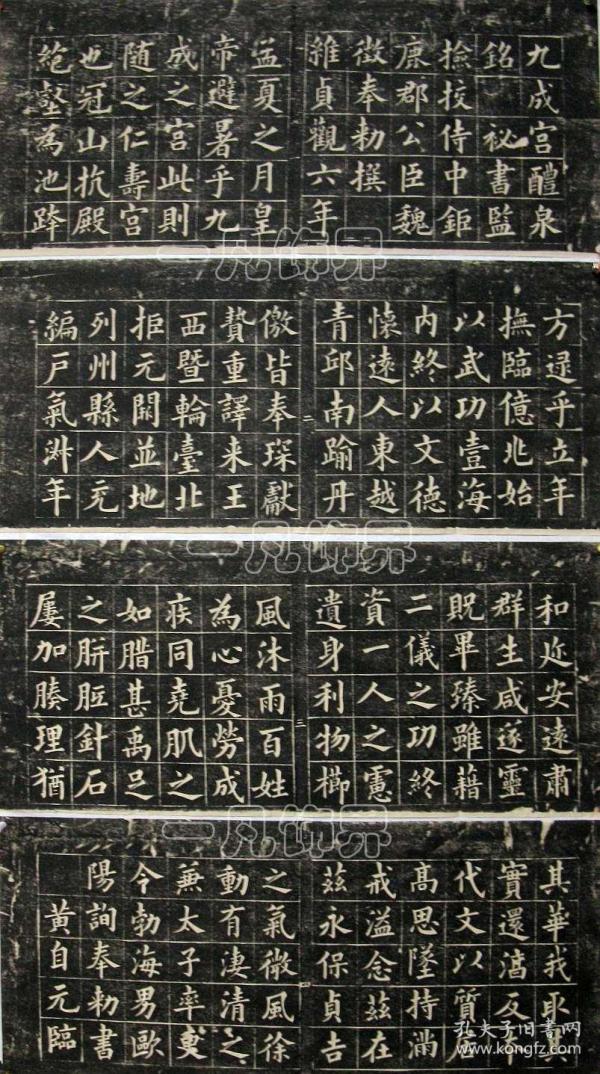 九成宫醴泉
銘 秘書監
撿挍侍中鉅
鹿郡公臣魏
徵奉勑撰
維貞觀六年
孟夏之月皇
帝避暑乎九
成之宫此則
随之仁壽宫
也冠山抗殿
絶壑為池跨
一凡饰界
方逯乎立年
撫臨億兆始
以武功壹海
内終以文德
懐遠人東越
青邱南踰丹
二
儌皆奉琛獻
贄重譯来王
西暨輪臺北
拒元闕並地
列州縣人充
編戸氣淑年
一凡饰界
和迩安遠肅
群生咸遂靈
貺畢臻雖藉
二儀之功終
資一人之慮
遺身利物櫛
三
風沐雨百姓
為心憂勞成
疾同堯肌之
如腊甚禹足
之胼胝針石
屢加腠理猶
一凡饰界
其華我取其
實還淳反本
代文以質居
高思墜持滿
戒溢念兹在
兹永保貞吉
之氣微風徐
動有淒清之
兼太子率更
令勃海男歐
陽詢奉勑書
黄自元臨
孔夫子旧书网
www.kongfz.com